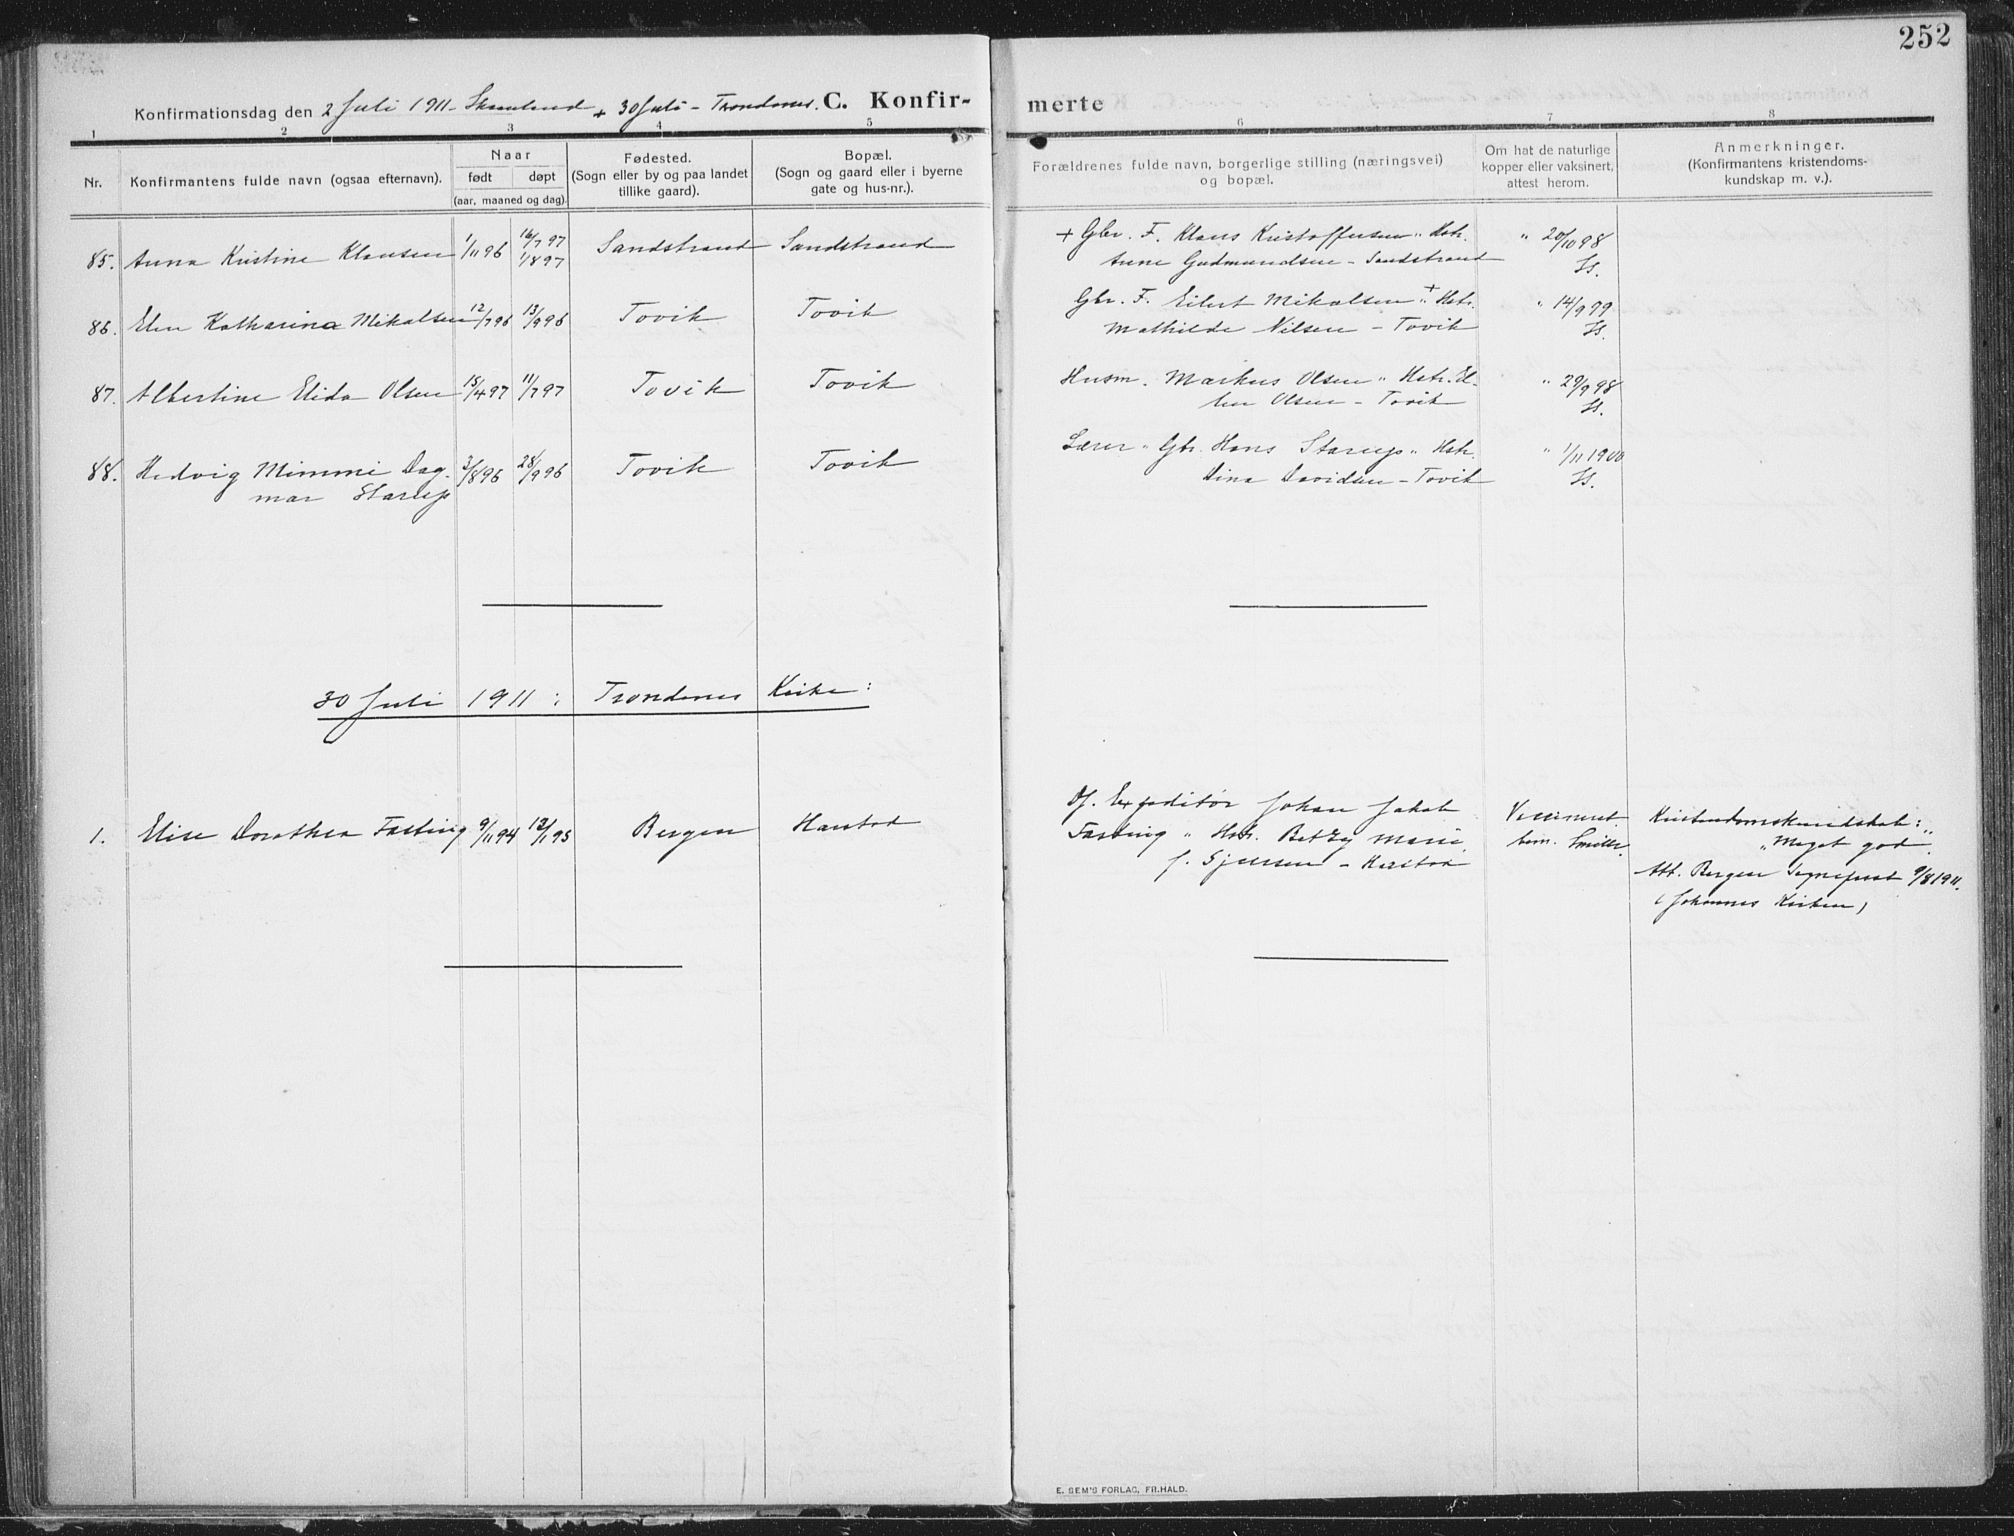 252
Konfirmationsdag den 2 Juli 1911 - Skaanland + 30 Juli - Trondenes. C. Konfirmerte
1 2 3 4 5 6 7 8
Nr.
Konfirmantens fulde navn (ogsaa efternavn).
Naar
født døpt
(aar, maaned og dag).
Fødested.
(Sogn eller by og paa landet
tillike gaard).
Bopæl.
(Sogn og gaard eller i byerne
gate og hus-nr.).
Forældrenes fulde navn, borgerlige stilling (næringsvei)
og bopæl.
Om hat de naturlige
kopper eller vaksinert,
attest herom.
Anmerkninger.
(Konfirmantens kristendoms-
kundskap m. v.).
85. Anna Kristine Klausen 1/11 96 16/7 97 1/8 97 Sandstrand Sandstrand + Gbr. F. Klaus Kristoffersen " Hstr. " 20/10 98
Anne Gudmundsen - Sandstrand
86. Elen Katharina Mikalsen 12/7 96 13/9 96 Tovik Tovik Gbr. F. Eilert Mikalsen " + Hstr. " 14/9 99
Mathilde Nilsen - Tovik
87. Albertine Elida Olsen 15/4 97 11/7 97 Tovik Tovik Husm. Markus Olsen " Hstr. El- " 29/9 98
len Olsen - Tovik
88. Hedvig Mimmi Dag- 3/8 96 28/9 96 Tovik Tovik Lærer " Gbr. Hans Starup " Hstr. " 1/11 1900
mar Starup Dina Davidsen - Tovik
30 Juli 1911: Trondenes Kirke:
1. Elise Dorothea Fasting 9/11 94 12/1 95 Bergen Harstad Df. Expeditør Johan Jakob Vaccinert Kristendomskundskab:
Fasting " Hstr. Betzy Marie Smith. "Meget god".
f. Gjersen - Harstad Att. Bergens Sogneprest 9/8 1911.
(Johannes Kirken)
E. SEM'S FORLAG, FR.HALD.